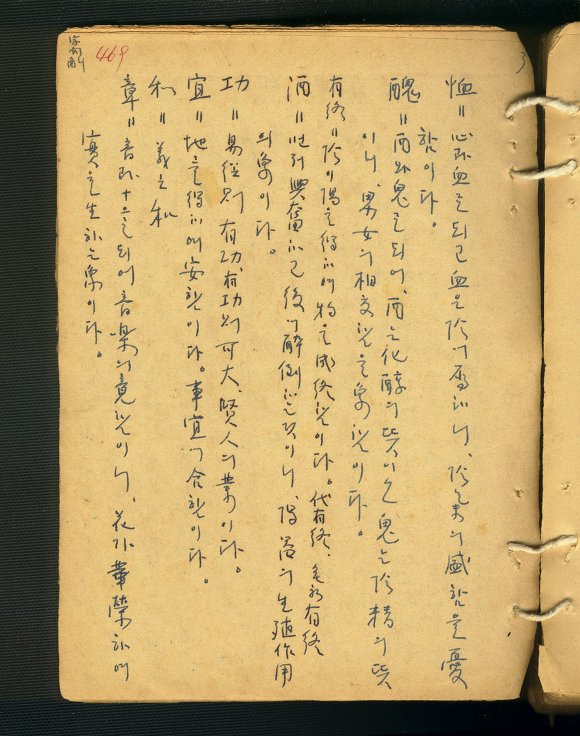 469
恤 = 心外血으로되고 血은 陰의 屬이니, 陰은 末의 盛함을 憂
함이다.
醜 = 酉外鬼로되어, 酉는 化醇의 뜻이오 鬼는 陰精의 뜻
이니, 男女의 相交함을 象함이다.
有終 = 陰이 陽을 得하여 物을 成終함이다. 代有終, 永有終
酒 = 먼저 興奮하고 後에 醉倒하는 것이니, 陽器의 生殖作用
의 象이다.
功 = 易從則 有功, 有功則可大, 賢人의 業이다.
宜 = 地를 得하여 安함이다. 事宜에 合함이다.
和 = 義之和
章 = 音外十으로되어 音樂의 竟함이니, 花가 華榮하여
實을 生하는 象이다。